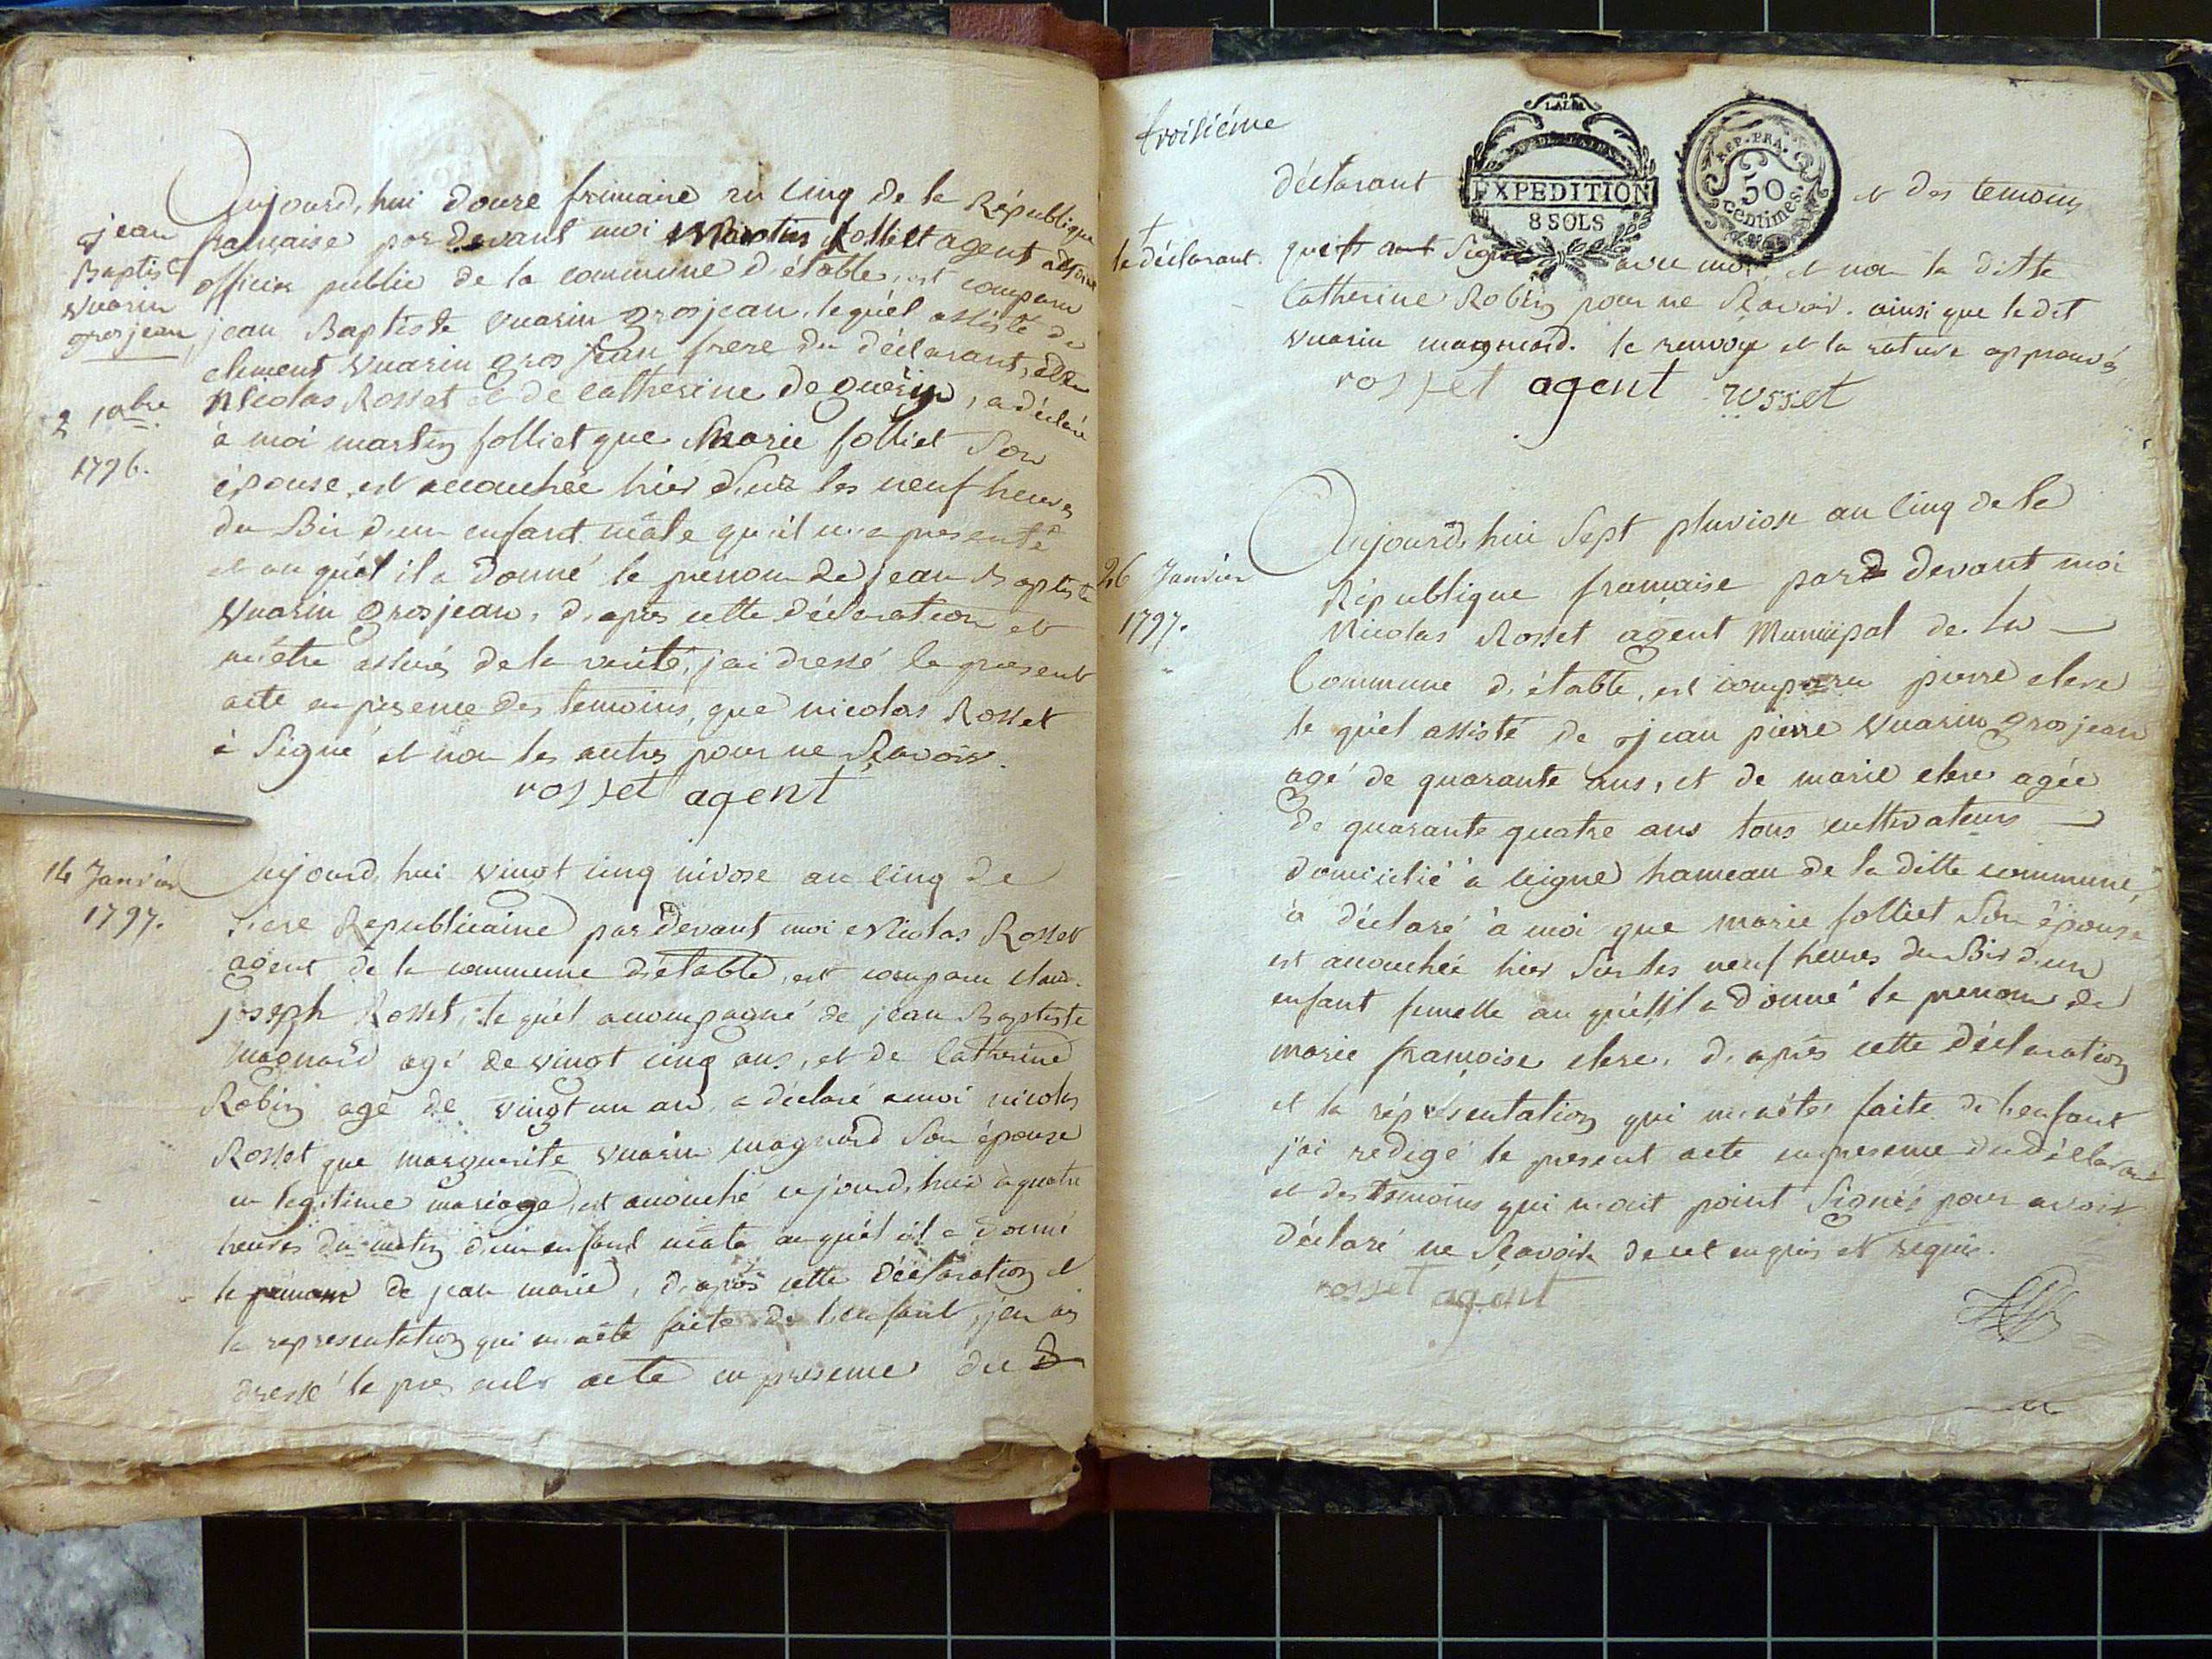 Aujourd,hui douze frimaire an cinq de la République
française par devant moi Martin folliet agent adjoint
officier public de la commune d'étable, est comparu
jean Baptiste vuarin grosjean, lequel assisté de
clement vuarin gros jean frere du déclarant, et de
Nicolas Rosset et de catherine deguerin, a déclaré
à moi martin folliet que Marie folliet Son
épouse est accouchée hier Sur les neuf heures
du Soir d'un enfant mâle qu'il m'a presenté
et au quel il a donné le prénom de jean Baptiste
vuarin grosjean, d'après cette déclaration et
m'être assuré de la verité, j'ai dressé le present
acte en presence des temoins, que nicolas Rosset
à Signé et non les autres pour ne Sçavoir.
rosset agent
jean
Baptiste
vuarin
grosjean
2 10bre
1796.
14 Janvier
1797.
Aujourd,hui vingt cinq nivose an cinq de
l'ere Republicaine par devant moi Nicolas Rosset
agent de la commune d'étable, est comparu
joseph Rosset, le quel acompagné de jean Baptiste
magnard agé de vingt cinq ans, et de Catherine
Robin agé de vingt un an, a déclaré a moi nicolas
Rosset que marguerite vuarin magnard Son épouse
en legitime mariage, est accouché aujourd,hui à quatre
heures du matin d'un enfant mâle au quel il a donné
le prenom de jean marie, d'après cette déclaration et
la representation qui m'a été faite de l'enfant, j'en ai
dressé le present acte en presence du
troisiéme
déclarant
EXPEDITION
8 SOLS
REP. FRA.
50
centimes
et des temoins
+
le déclarant
qui Signé avec moi et non la ditte
Catherine Robin pour ne Sçavoir. ainsi que le dit
vuarin magnard. le renvoy et la rature approuvés
rosset agent rosset
26 Janvier
1797.
Aujourd,hui Sept pluviose an cinq de la
République française par devant moi
Nicolas Rosset agent Municipal de la
Commune d'étable, est comparu pierre clerc
le quel assisté de jean pierre vuarin grosjean
agé de quarante ans, et de marie clerc agée
de quarante quatre ans tous cultivateurs
domicilié à hameau de la ditte commune,
à déclaré à moi que marie folliet Son épouse
est accouchée hier Sur les neuf heures du Soir d'un
enfant femelle au quel il a donné le prenom de
marie françoise clerc, d'après cette déclaration
et la réprésentation qui m'a été faite de l'enfant
j'ai redigé le present acte en presence du déclarant
et des temoins qui n'ont point Signés pour avoir
déclaré ne Sçavoir de ce enquis et requis.
rosset agent